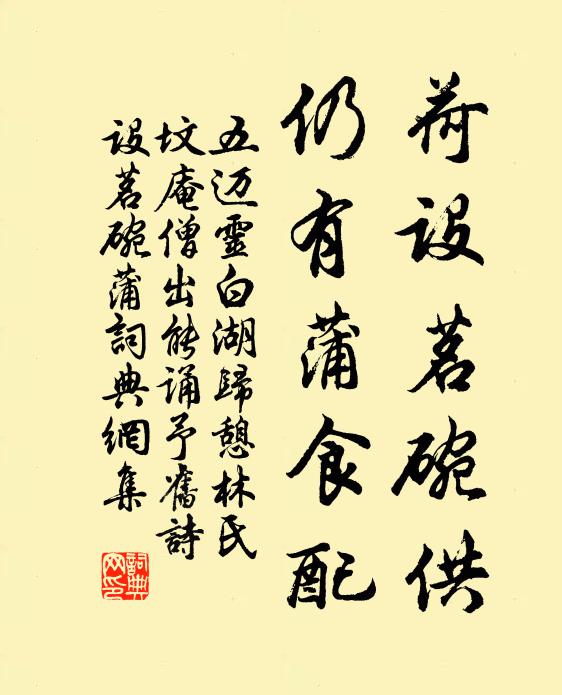 荷设茗碗供
仍有蒲食配
五迈灵白湖歸憩林氏
坟庵僧出能诵予旧詩
设茗碗蒲詞典網集
詞典网印